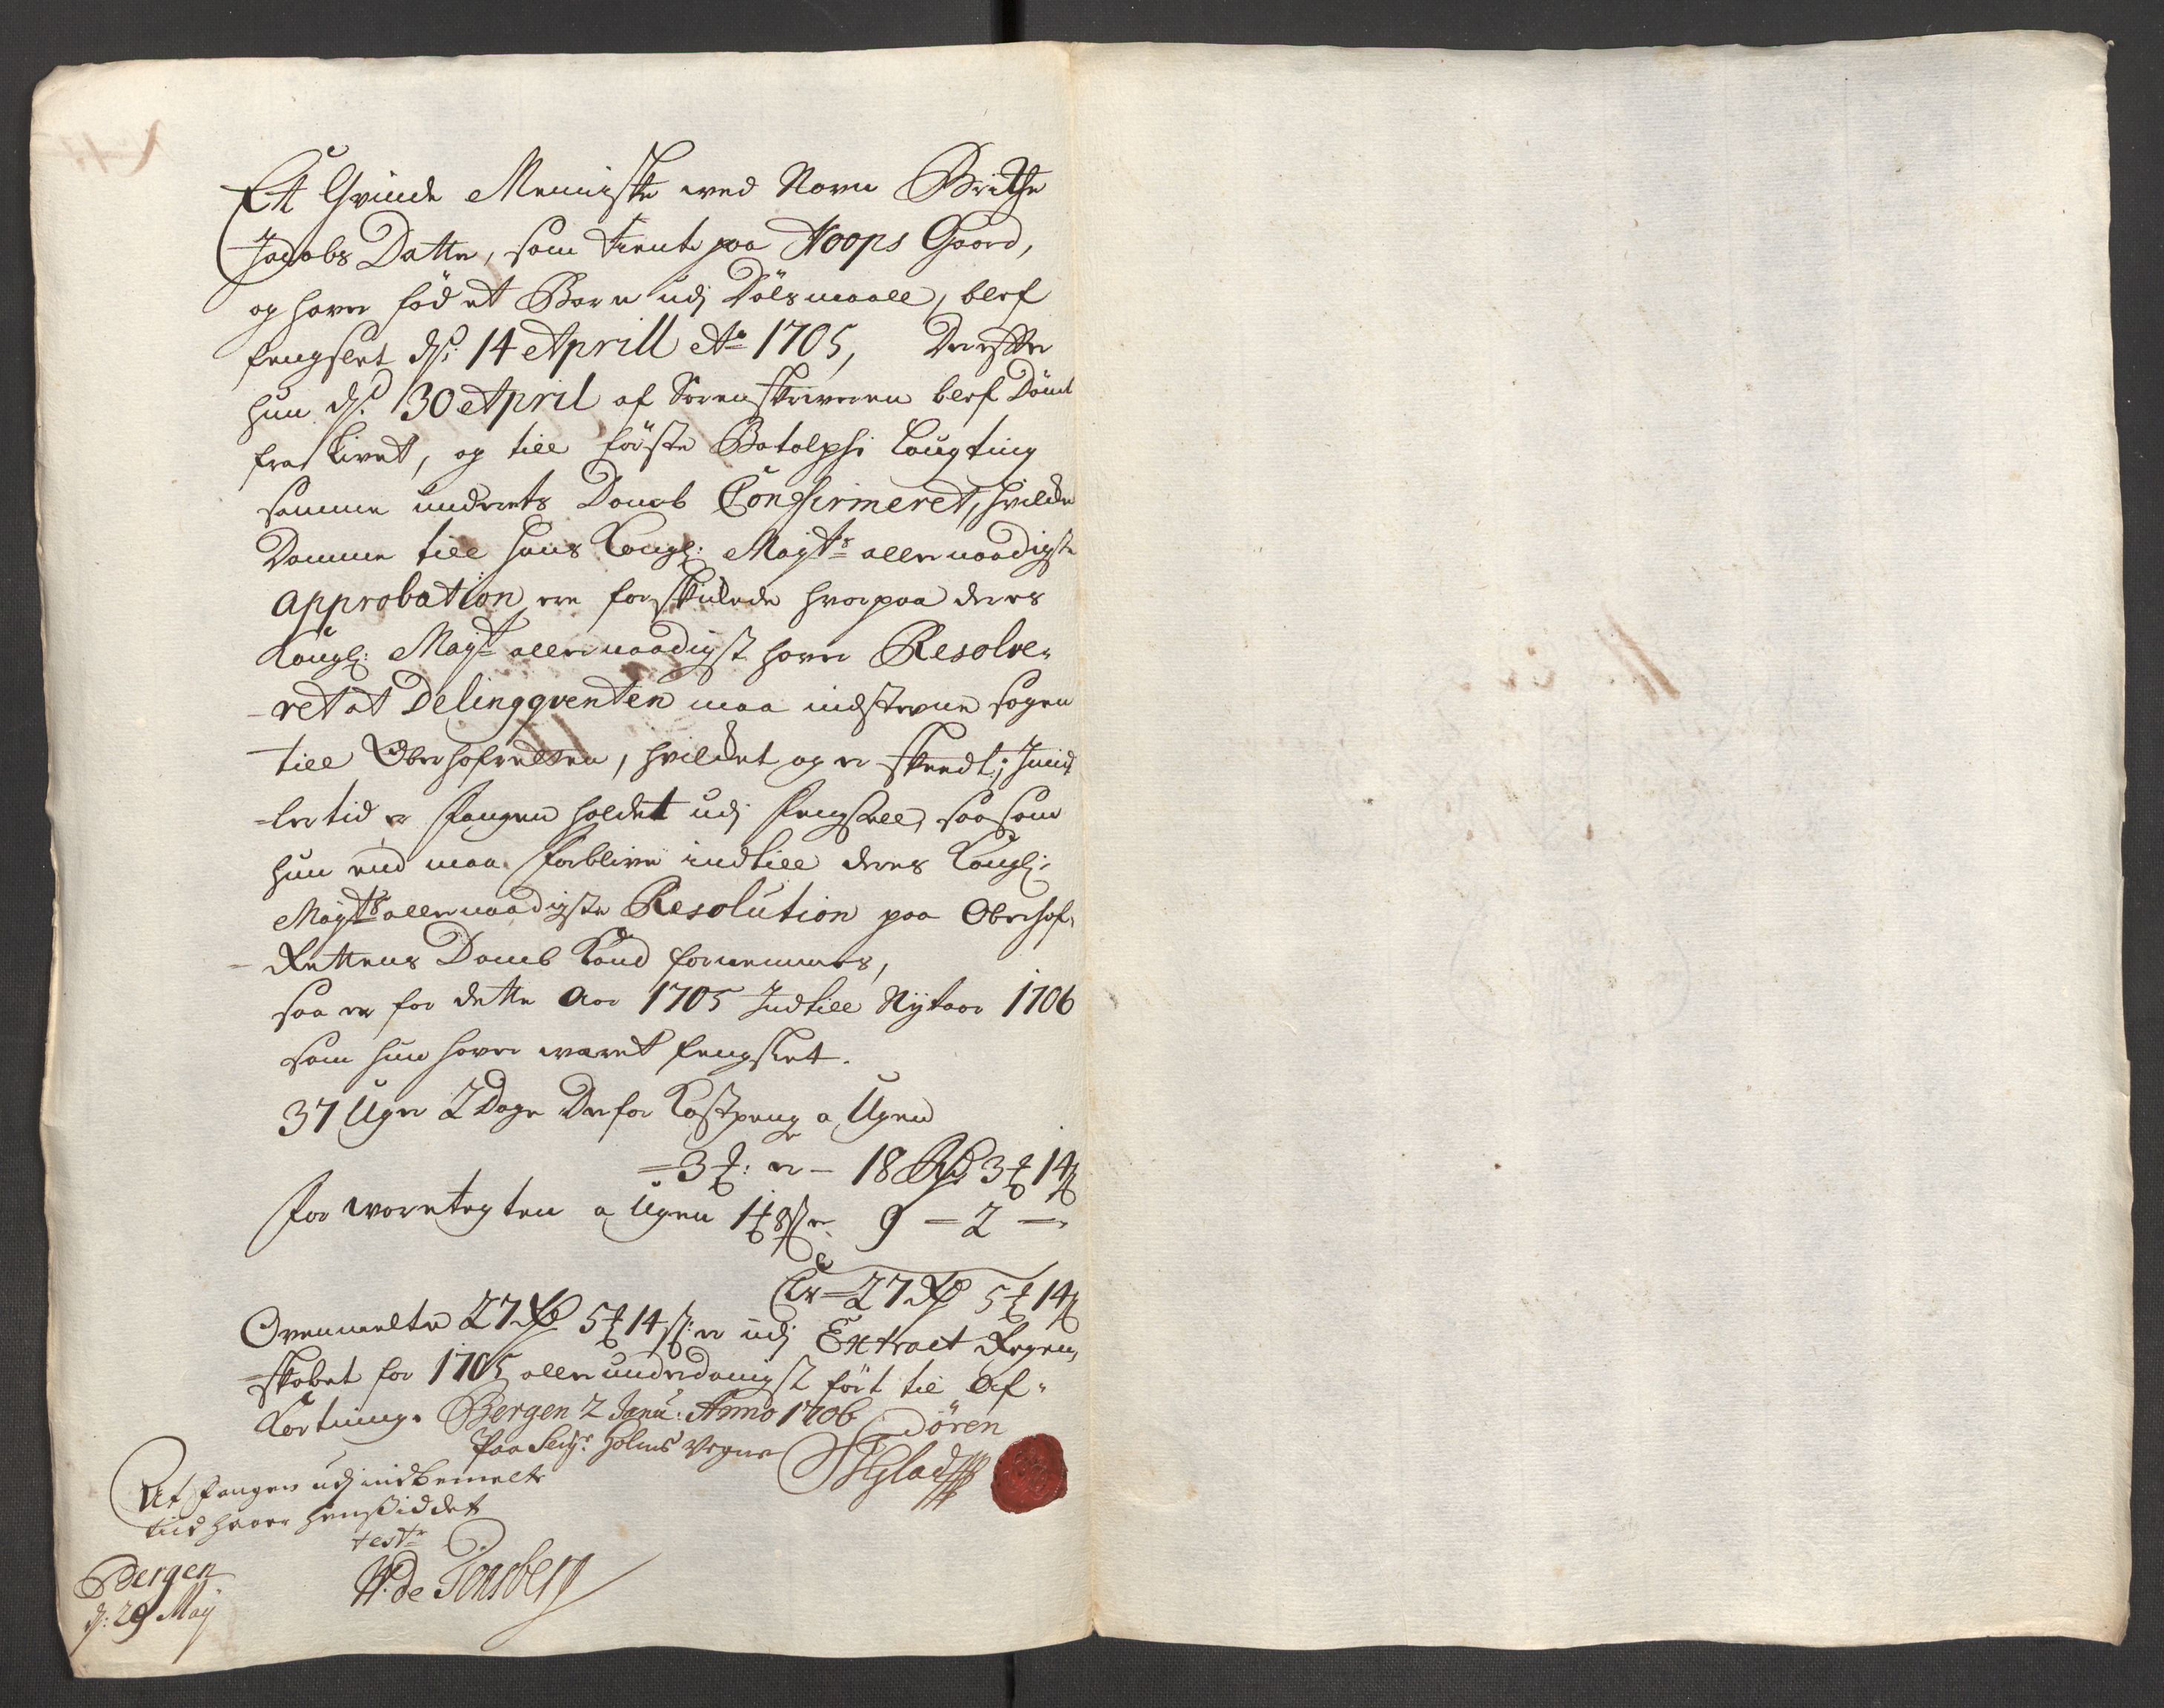 Et Qvinde Menniske ved Navn Brithe
Jacobs Datter, som tient paa Hoops Gaard,
og haver fød et Barn udj Dølsmaall, blef
fengslet d: 14 Aprill Ao 1705, Derefter
hun d: 30 April af Sorenskriveren blef Dømt
fra Livet, og till første Botolphi Laugting
samme underrets Domb Confirmeret, hvilche
Domme till Hans Kongl: Mayts allernaadigste
approbation ere forskickede hvorpaa deres
Kongl: Mayt allernaadigst haver Resolve-
-ret at Delingqventen maa indstevne sagen
till Oberhofretten, hvilchet og er skeedt; Imid
-lertid er fangen holdet udj fengsell, saasom
hun end maa forblive indtill deres Kongl:
Mayts allernaadigste Resolution paa Oberhof-
-Rettens Domb kand fornemmes,
saa er for dette Aar 1705 Indtill Nytaar 1706
som hun haver waret fengslet.
37 Uger 2 Dage Derfor Kostpenge a Ugen
=3 : er - 18 Rd 3 14
for waretegten a Ugen 1 8 s er 9 - 2 -
Er = 27 Rd 5 14
Ovenmelte 27 Rd 5 14 s: er udj Extract Regen-
=skabet for 1705 allerunderdanigst ført til Af-
Kortning. Bergen 2 Janu: Anno 1706
Paa Holms Vegne Søren
Glad
At fangen udj indbemelte
tiid haver hensiddet
test
Bergen W: de Tonsberg
d: 29 May